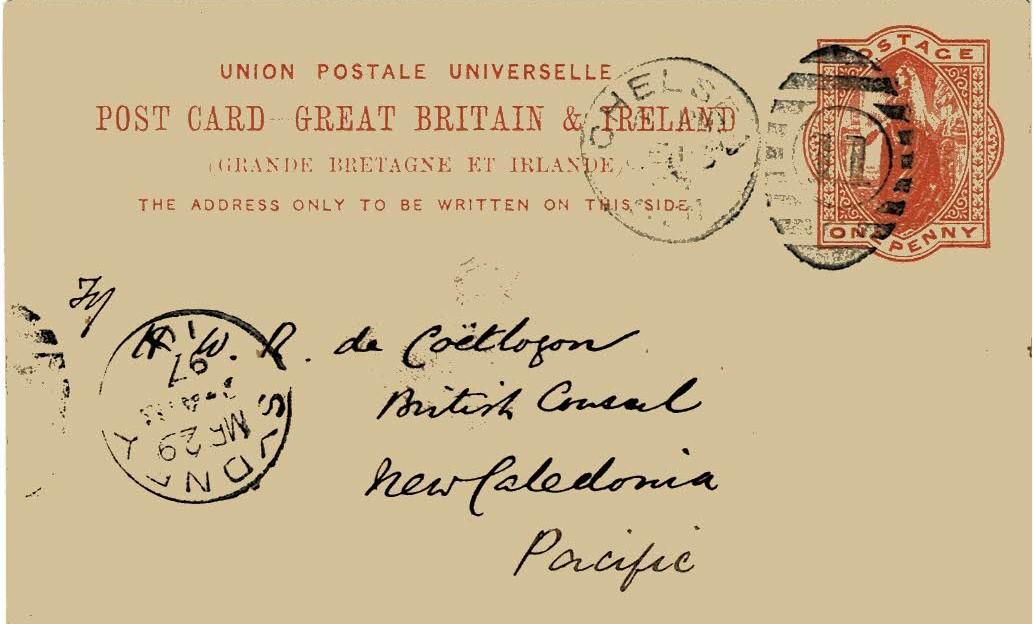 UNION POSTALE UNIVERSELLE
POST CARD GREAT BRITAIN & IRELAND
(GRANDE BRETAGNE ET IRLANDE)
THE ADDRESS ONLY TO BE WRITTEN ON THIS SIDE
POSTAGE
ONE PENNY
CHELSEA
H W. R. de Coëtlogon
British Consul
New Caledonia
Pacific
SYDNEY
MR 29
97